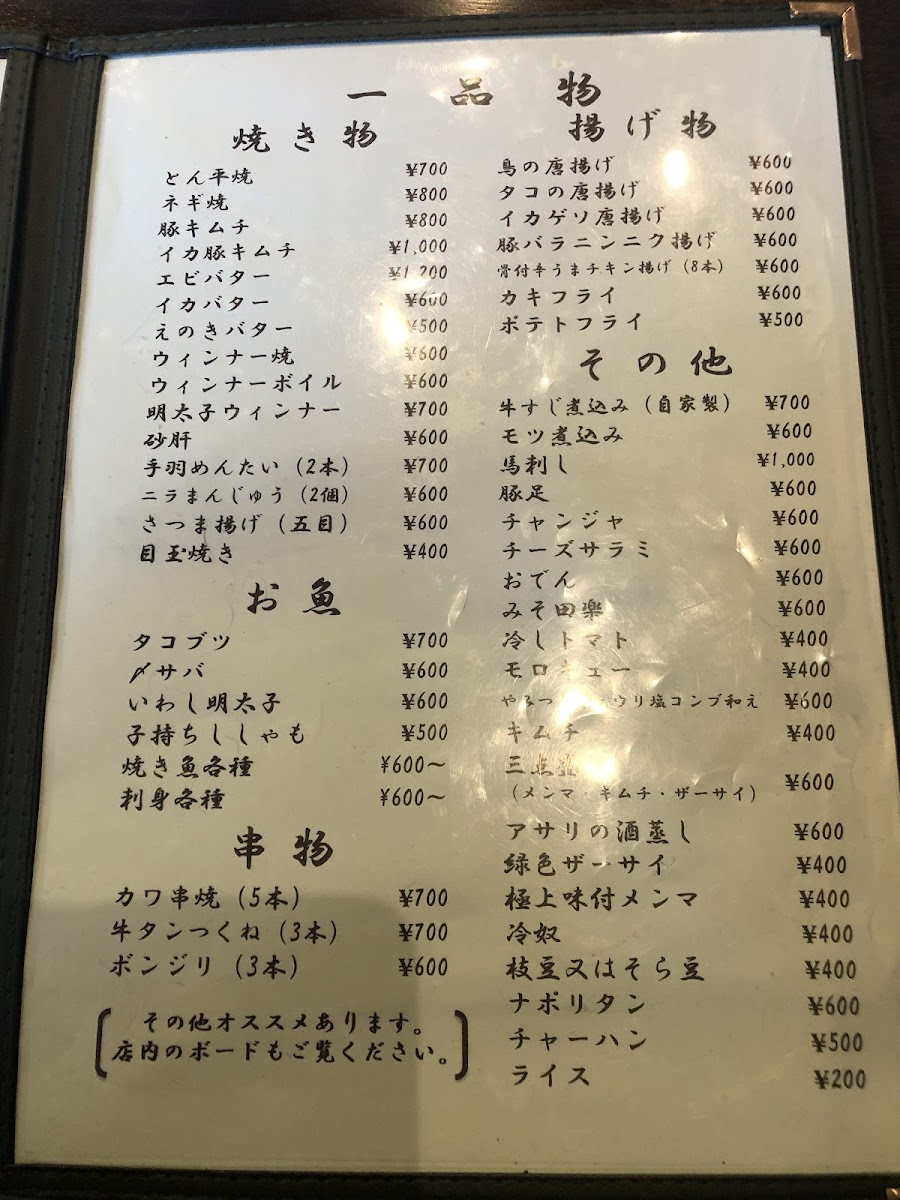 一品物
焼き物
とん平焼 ¥700
ネギ焼 ¥800
豚キムチ ¥800
イカ豚キムチ ¥1,000
エビバター ¥1,200
イカバター ¥600
えのきバター ¥500
ウィンナー焼 ¥600
ウィンナーボイル ¥600
明太子ウィンナー ¥700
砂肝 ¥600
手羽めんたい（2本） ¥700
ニラまんじゅう（2個） ¥600
さつま揚げ（五目） ¥600
目玉焼き ¥400
お魚
タコブツ ¥700
〆サバ ¥600
いわし明太子 ¥600
子持ちししゃも ¥500
焼き魚各種 ¥600〜
刺身各種 ¥600〜
串物
カワ串焼（5本） ¥700
牛タンつくね（3本） ¥700
ボンジリ（3本） ¥600
その他オススメあります。
店内のボードもご覧ください。
揚げ物
鳥の唐揚げ ¥600
タコの唐揚げ ¥600
イカゲソ唐揚げ ¥600
豚バラニンニク揚げ ¥600
骨付辛うまチキン揚げ（8本） ¥600
カキフライ ¥600
ポテトフライ ¥500
その他
牛すじ煮込み（自家製） ¥700
モツ煮込み ¥600
馬刺し ¥1,000
豚足 ¥600
チャンジャ ¥600
チーズサラミ ¥600
おでん ¥600
みそ田楽 ¥600
冷しトマト ¥400
モロキュー ¥400
ウリ塩コンブ和え ¥600
キムチ ¥400
三点盛 ¥600
（メンマ・キムチ・ザーサイ）
アサリの酒蒸し ¥600
緑色ザーサイ ¥400
極上味付メンマ ¥400
冷奴 ¥400
枝豆又はそら豆 ¥400
ナポリタン ¥600
チャーハン ¥500
ライス ¥200